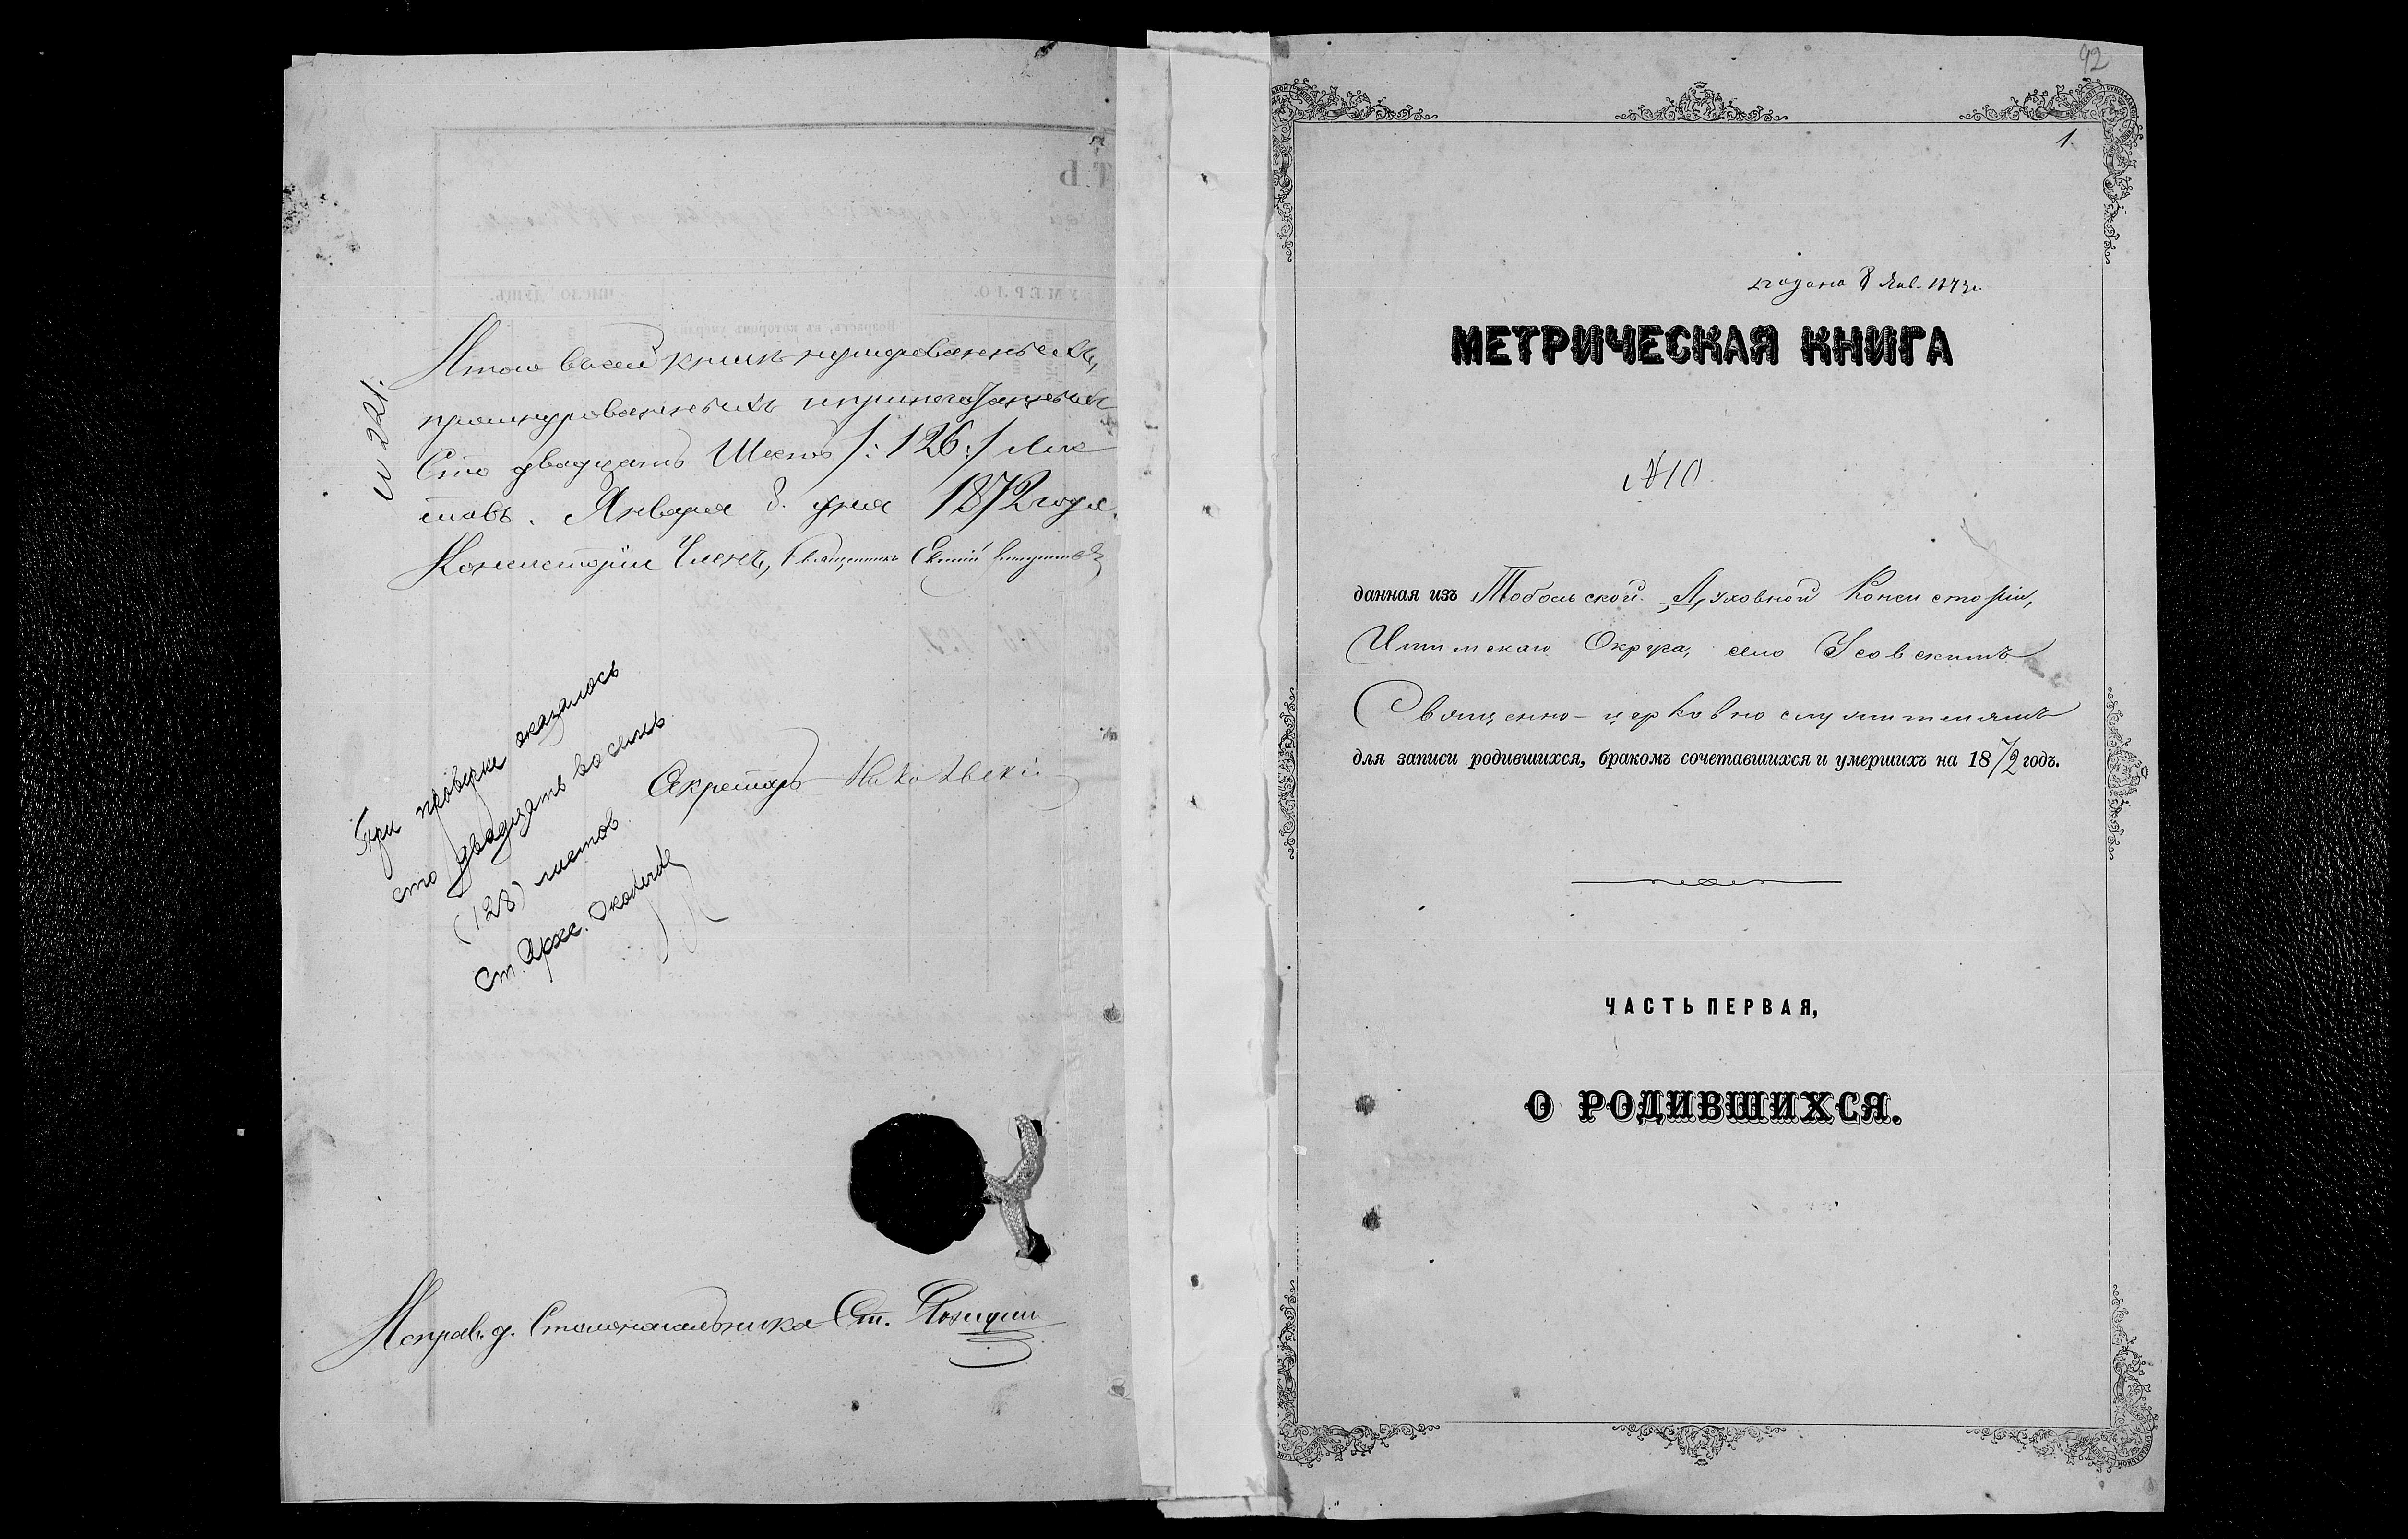 Итого въ сей книгѣ нумерованныхъ,
прошнурованныхъ и припечатанныхъ
Сто двадцать Шесть /:126:/ лис
товъ. Января 8. дня 1872 года.
Консисторіи Членъ, Священникъ
№ 221.
При проверке оказалось
сто двадцать восемь
(128) листов
Ст. Архс.
Секретарь
Исправ. д. Столоначальника Ст.
92
1.
подана 8 Янв. 1873 г.
МЕТРИЧЕСКАЯ КНИГА
№ 10.
данная изъ Тобольской Духовной Консисторіи,
Ишимскаго Округа, села Усовскимъ
Священно-церковнослужителямъ
для записи родившихся, бракомъ сочетавшихся и умершихъ на 1872 годъ.
ЧАСТЬ ПЕРВАЯ,
О РОДИВШИХСЯ.